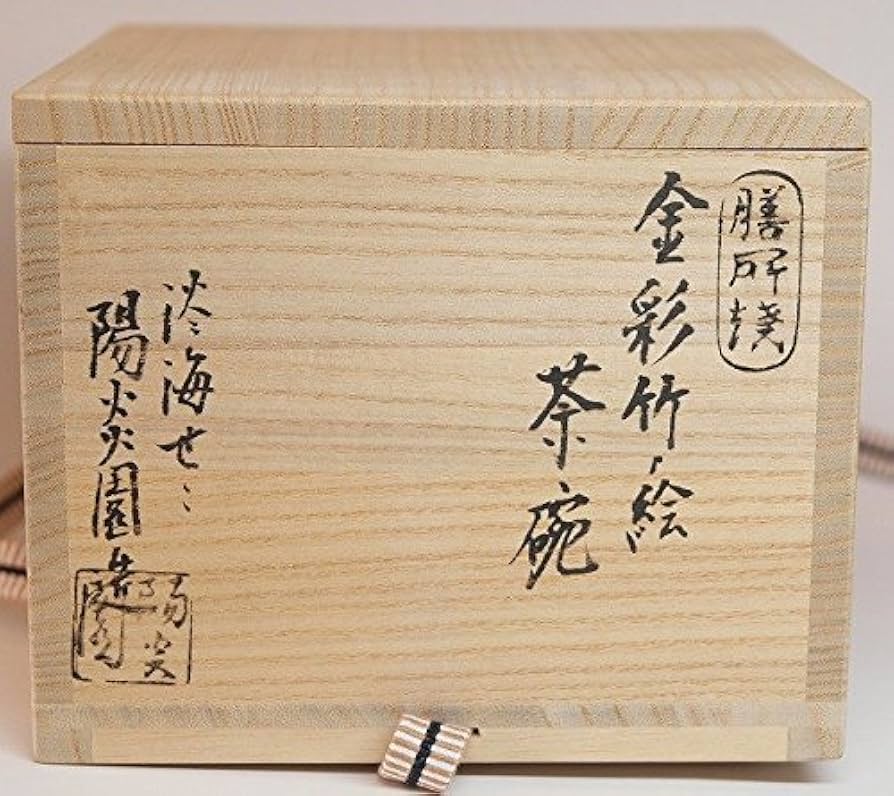 膳所焼
金彩竹ノ絵
茶碗
淡海せゝ
陽炎園造
陽炎園